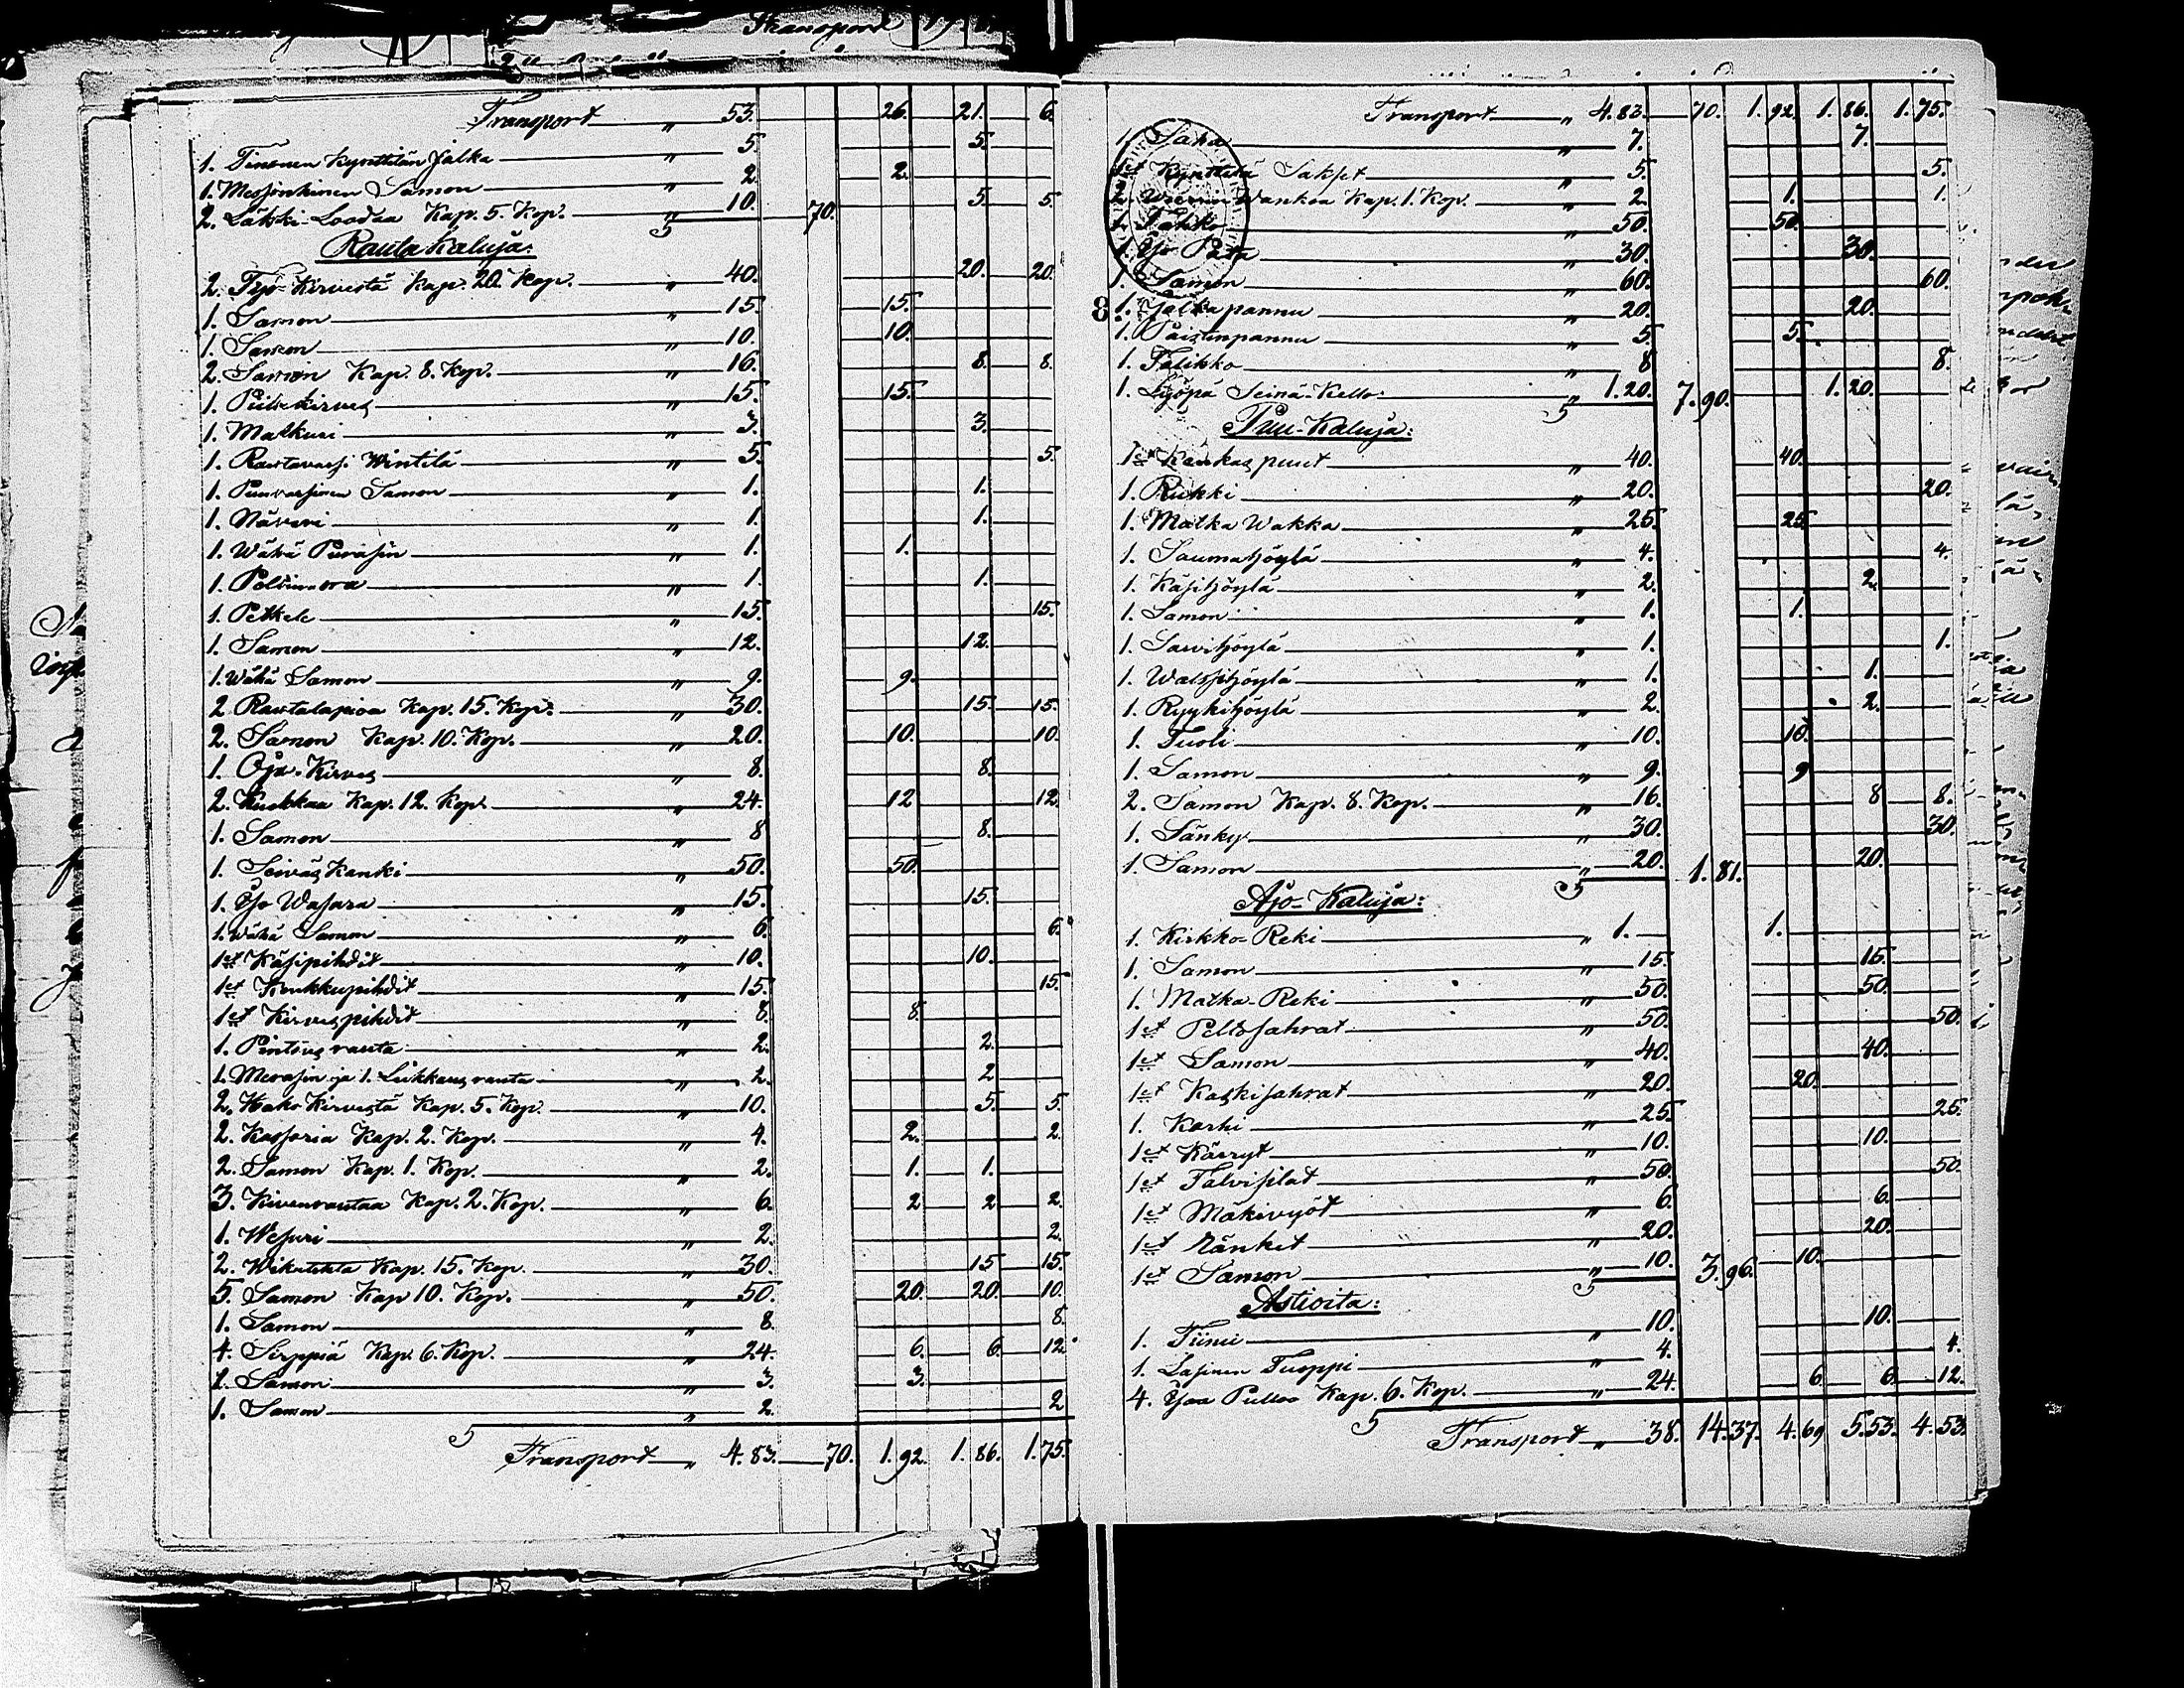 Transport " 53. 26. 21. 6.
1. Tinanen Kynttilän Jalka " 5. 5.
1. Messinkinen Samon " 2. 2.
2. Läkki Loodaa Kap. 5. Kop. " 10. 70. 5. 5.
Rauta Kaluja:
2. Työ-Kirvestä Kap. 20. Kop. " 40. 20. 20.
1. Samon " 15. 15.
1. Samon " 10. 10.
2. Samon Kap. 8. Kop. " 16. 8. 8.
1. Piilukirves " 15. 15.
1. Matkuri " 3. 3.
1. Rautavarsi Wintilä " 5. 5.
1. Puuvarsinen Samon " 1. 1.
1. Näveri " 1. 1.
1. Wähä Purasin " 1. 1.
1. " 1. 1.
1. Petkele " 15. 15.
1. Samon " 12. 12.
1. Wähä Samon " 9. 9.
2. Rautalapioa Kap. 15. Kop. " 30. 15. 15.
2. Samon Kap. 10. Kop. " 20. 10. 10.
1. Oja-Kirves " 8. 8.
2. Kuokkaa Kap. 12. Kop. " 24. 12 12
1. Samon " 8 8.
1. Seiväs Kanki " 50. 50.
1. Iso Wasara " 15. 15.
1. Wähä Samon " 6. 6.
1et Käsipihdit " 10. 10.
1et Koukkupihdit " 15. 15.
1et Kirvespihdit " 8. 8.
1. Pintöus rauta " 2. 2.
1. Merasin ja 1. Liikkaus rauta " 2. 2
2. Hako Kirvestä Kap. 5. Kop. " 10. 5. 5.
2. Kassaria Kap. 2. Kop. " 4. 2. 2.
2. Samon Kap. 1. Kop. " 2. 1. 1.
3. Kivenrautaa Kap. 2. Kop. " 6. 2 2 2.
1. Wesuri " 2. 2.
2. Wikatehta Kap. 15. Kop. " 30. 15 15.
5. Samon Kap 10. Kop. " 50. 20. 20. 10.
1. Samon " 8. 8.
4. Sirppiä Kap. 6. Kop. " 24. 6. 6. 12
1. Samon " 3. 3.
1. Samon " 2. 2
Transport " 4. 83. 70. 1. 92. 1. 86. 1. 75.
Transport " 4. 83. 70. 1. 92. 1. 86. 1. 75.
1. Saha " 7. 7.
1et Kynttilä Sakset " 5. 5.
2. Wankoa Kap. 1. Kop. " 2. 1. 1.
1. Tahko " 50. 50.
1. Iso Pata " 30. 30.
1. Samon " 60. 60.
8. 1. Jalka pannu " 20. 20.
1. Paistinpannu " 5. 5.
1. Talikko " 8 8.
1. Lyöpä Seinä-Kello " 1. 20. 7. 90. 1. 20.
Puu-Kaluja:
1et Kankas puut " 40. 40.
1. Rukki " 20. 20.
1. Matka Wakka " 25. 25
1. Saumahöylä " 4. 4.
1. Käsihöylä " 2. 2.
1. Samon " 1. 1.
1. Sarvihöylä " 1. 1.
1. Walssihöylä " 1. 1.
1. Ryykihöylä " 2. 2.
1. Tuoli " 10. 10.
1. Samon " 9. 9
2. Samon Kap. 8. Kop. " 16. 8 8.
1. Sänky " 30. 30.
1. Samon " 20. 1. 81. 20.
Ajo-Kaluja:
1. Kirkko-Reki " 1. 1.
1. Samon " 15. 15.
1. Matka-Reki " 50. 50.
1et Peltosahrat " 50. 50.
1et Samon " 40. 40.
1et Kaskisahrat " 20. 20.
1. Karhi " 25. 25.
1et Kärryt " 10. 10.
1et Talvisilat " 50. 50.
1et Mäkivyöt " 6. 6.
1et Länket " 20. 20.
1et Samon " 10. 3. 96. 10.
Astioita:
1. Tiinu " 10. 10.
1. Lasinen Tuoppi " 4. 4.
4. Isoa Pulloo Kap. 6. Kop. " 24. 6 6. 12.
Transport " 38. 14. 37. 4. 69 5. 53. 4. 53.